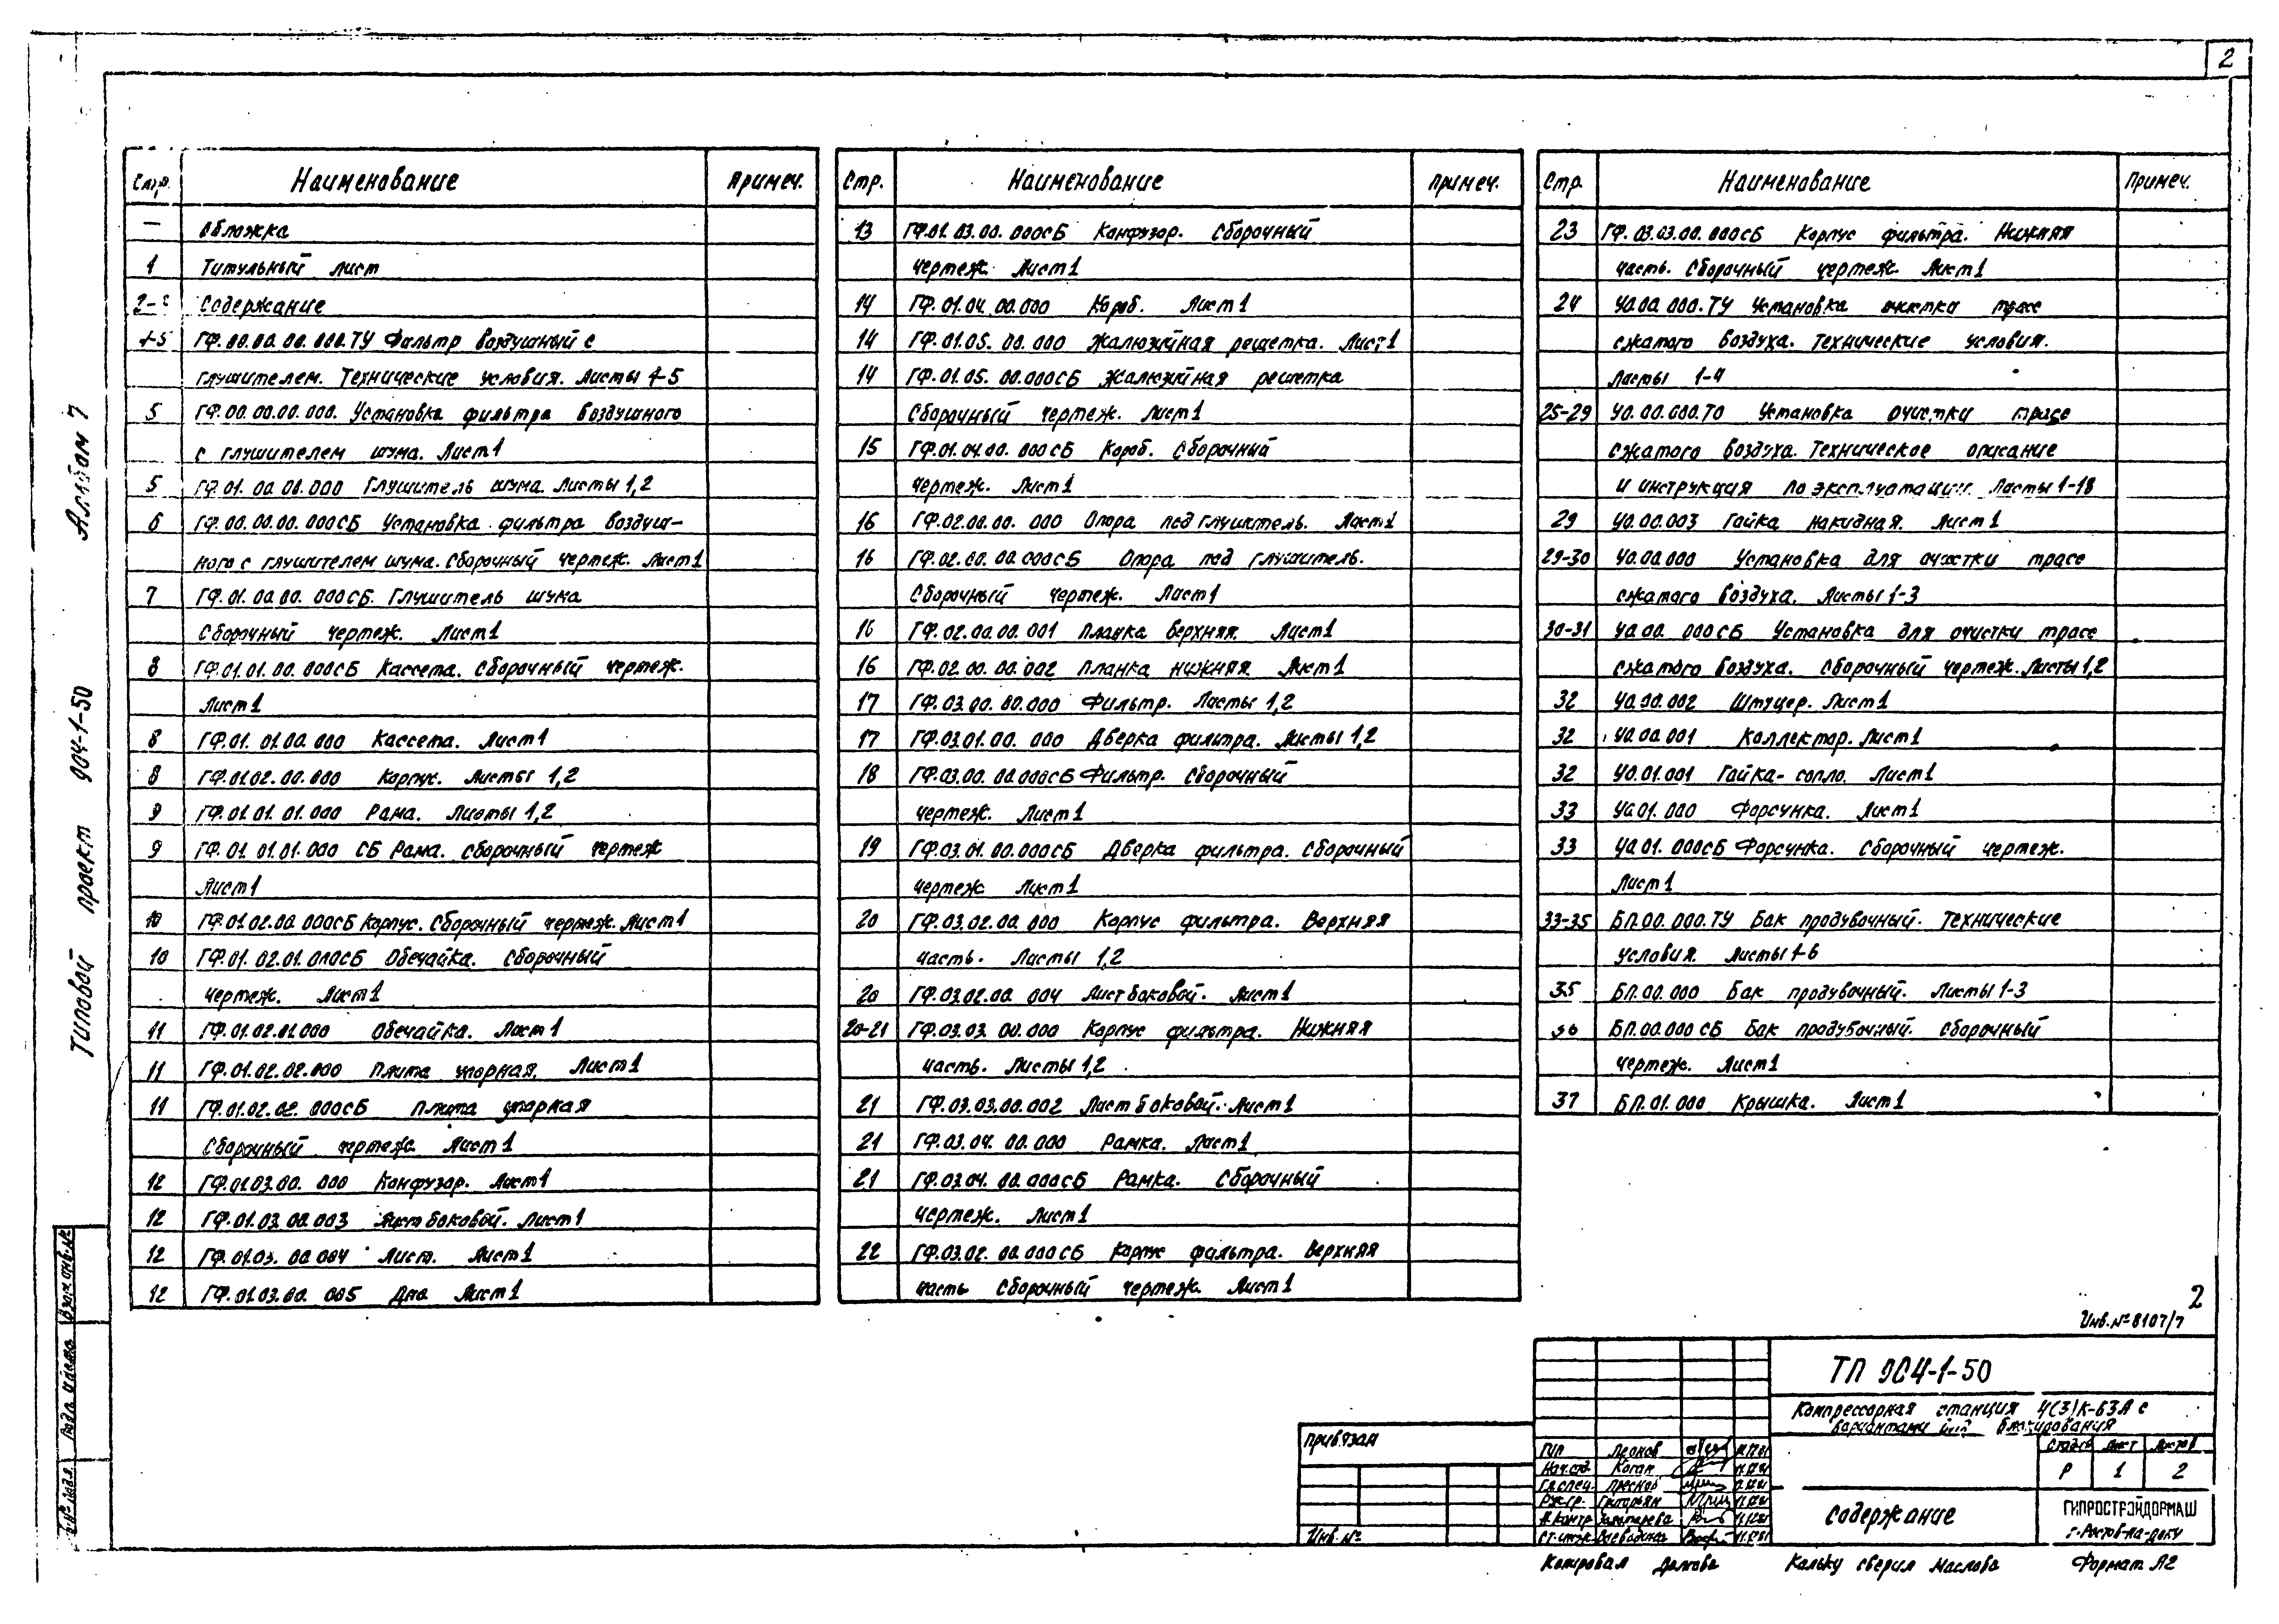 2
Альбом 7
Типовой проект 904-1-50
Стр. Наименование Примеч.
— Обложка
1 Титульный лист
Содержание
4-5 ГФ.00.00.00.000.ТУ Фильтр воздушный с
глушителем. Технические условия. Листы 1-5
5 ГФ.00.00.00.000. Установка фильтра воздушного
с глушителем шума. Лист 1
5 ГФ.01.00.00.000 Глушитель шума. Листы 1,2
6 ГФ.00.00.00.000СБ Установка фильтра воздуш-
ного с глушителем шума. Сборочный чертеж. Лист 1
7 ГФ.01.00.00.000СБ. Глушитель шума
Сборочный чертеж. Лист 1
8 ГФ.01.01.00.000СБ Кассета. Сборочный чертеж.
Лист 1
8 ГФ.01.01.00.000 Кассета. Лист 1
8 ГФ.01.02.00.000 Корпус. Листы 1,2
9 ГФ.01.01.01.000 Рама. Листы 1,2
9 ГФ.01.01.01.000 СБ Рама. Сборочный чертеж
Лист 1
10 ГФ.01.02.00.000СБ Корпус. Сборочный чертеж. Лист 1
10 ГФ.01.02.01.000СБ Обечайка. Сборочный
чертеж. Лист 1
11 ГФ.01.02.01.000 Обечайка. Лист 1
11 ГФ.01.02.02.000 Плита упорная. Лист 1
11 ГФ.01.02.02.000СБ Плита упорная
Сборочный чертеж. Лист 1
12 ГФ.01.03.00.000 Конфузор. Лист 1
12 ГФ.01.03.00.003 Лист боковой. Лист 1
12 ГФ.01.03.00.004 Лист. Лист 1
12 ГФ.01.03.00.005 Дно Лист 1
Стр. Наименование Примеч.
13 ГФ.01.03.00.000СБ Конфузор. Сборочный
чертеж. Лист 1
14 ГФ.01.04.00.000 Короб. Лист 1
14 ГФ.01.05.00.000 Жалюзийная решетка. Лист 1
14 ГФ.01.05.00.000СБ Жалюзийная решетка
Сборочный чертеж. Лист 1
15 ГФ.01.04.00.000СБ Короб. Сборочный
чертеж. Лист 1
16 ГФ.02.00.00.000 Опора под глушитель. Лист 1
16 ГФ.02.00.00.000СБ Опора под глушитель.
Сборочный чертеж. Лист 1
16 ГФ.02.00.00.001 Планка верхняя. Лист 1
16 ГФ.02.00.00.002 Планка нижняя. Лист 1
17 ГФ.03.00.00.000 Фильтр. Листы 1,2
17 ГФ.03.01.00.000 Дверка фильтра. Листы 1,2
18 ГФ.03.00.00.000СБ Фильтр. Сборочный
чертеж. Лист 1
19 ГФ.03.01.00.000СБ Дверка фильтра. Сборочный
чертеж Лист 1
20 ГФ.03.02.00.000 Корпус фильтра. Верхняя
часть. Листы 1,2
20 ГФ.03.02.00.004 Лист боковой. Лист 1
20-21 ГФ.03.03.00.000 Корпус фильтра. Нижняя
часть. Листы 1,2
21 ГФ.03.03.00.002 Лист боковой. Лист 1
21 ГФ.03.04.00.000 Рамка. Лист 1
21 ГФ.03.04.00.000СБ Рамка. Сборочный
чертеж. Лист 1
22 ГФ.03.02.00.000СБ Корпус фильтра. Верхняя
часть Сборочный чертеж. Лист 1
Стр. Наименование Примеч.
23 ГФ.03.03.00.000СБ Корпус фильтра. Нижняя
часть. Сборочный чертеж. Лист 1
24 УО.00.000.ТУ Установка очистки трасс
сжатого воздуха. Технические условия.
Листы 1-4
25-29 УО.00.000.ТО Установка очистки трасс
сжатого воздуха. Техническое описание
и инструкция по эксплуатации. Листы 1-18
29 УО.00.003 Гайка накидная. Лист 1
29-30 УО.00.000 Установка для очистки трасс
сжатого воздуха. Листы 1-3
30-31 УО.00.000СБ Установка для очистки трасс
сжатого воздуха. Сборочный чертеж. Листы 1,2
32 УО.00.002 Штуцер. Лист 1
32 УО.00.001 Коллектор. Лист 1
32 УО.01.001 Гайка-сопло. Лист 1
33 УО.01.000 Форсунка. Лист 1
33 УО.01.000СБ Форсунка. Сборочный чертеж.
Лист 1
33-35 БП.00.000.ТУ Бак продувочный. Технические
условия. Листы 1-6
35 БП.00.000 Бак продувочный. Листы 1-3
36 БП.00.000 СБ Бак продувочный. Сборочный
чертеж. Лист 1
37 БП.01.000 Крышка. Лист 1
2
Инв.№ 8107/7
ТП 904-1-50
Компрессорная станция 4(3)К-63А с
вариантами блокирования
Стадия Лист Листов
Р 1 2
Содержание
ГИПРОСТРОЙДОРМАШ
г. Ростов-на-Дону
Привязан
Инв.№
ГИП Леонов
Нач.отд. Коган
Гл.спец. Преснов
Рук.гр. Григорьян
Н.контр.
Ст.инж.
Взам.инв.№
Подп. и дата
Инв.№ подл.
Копировал Кальку сверил Маслова Формат А2